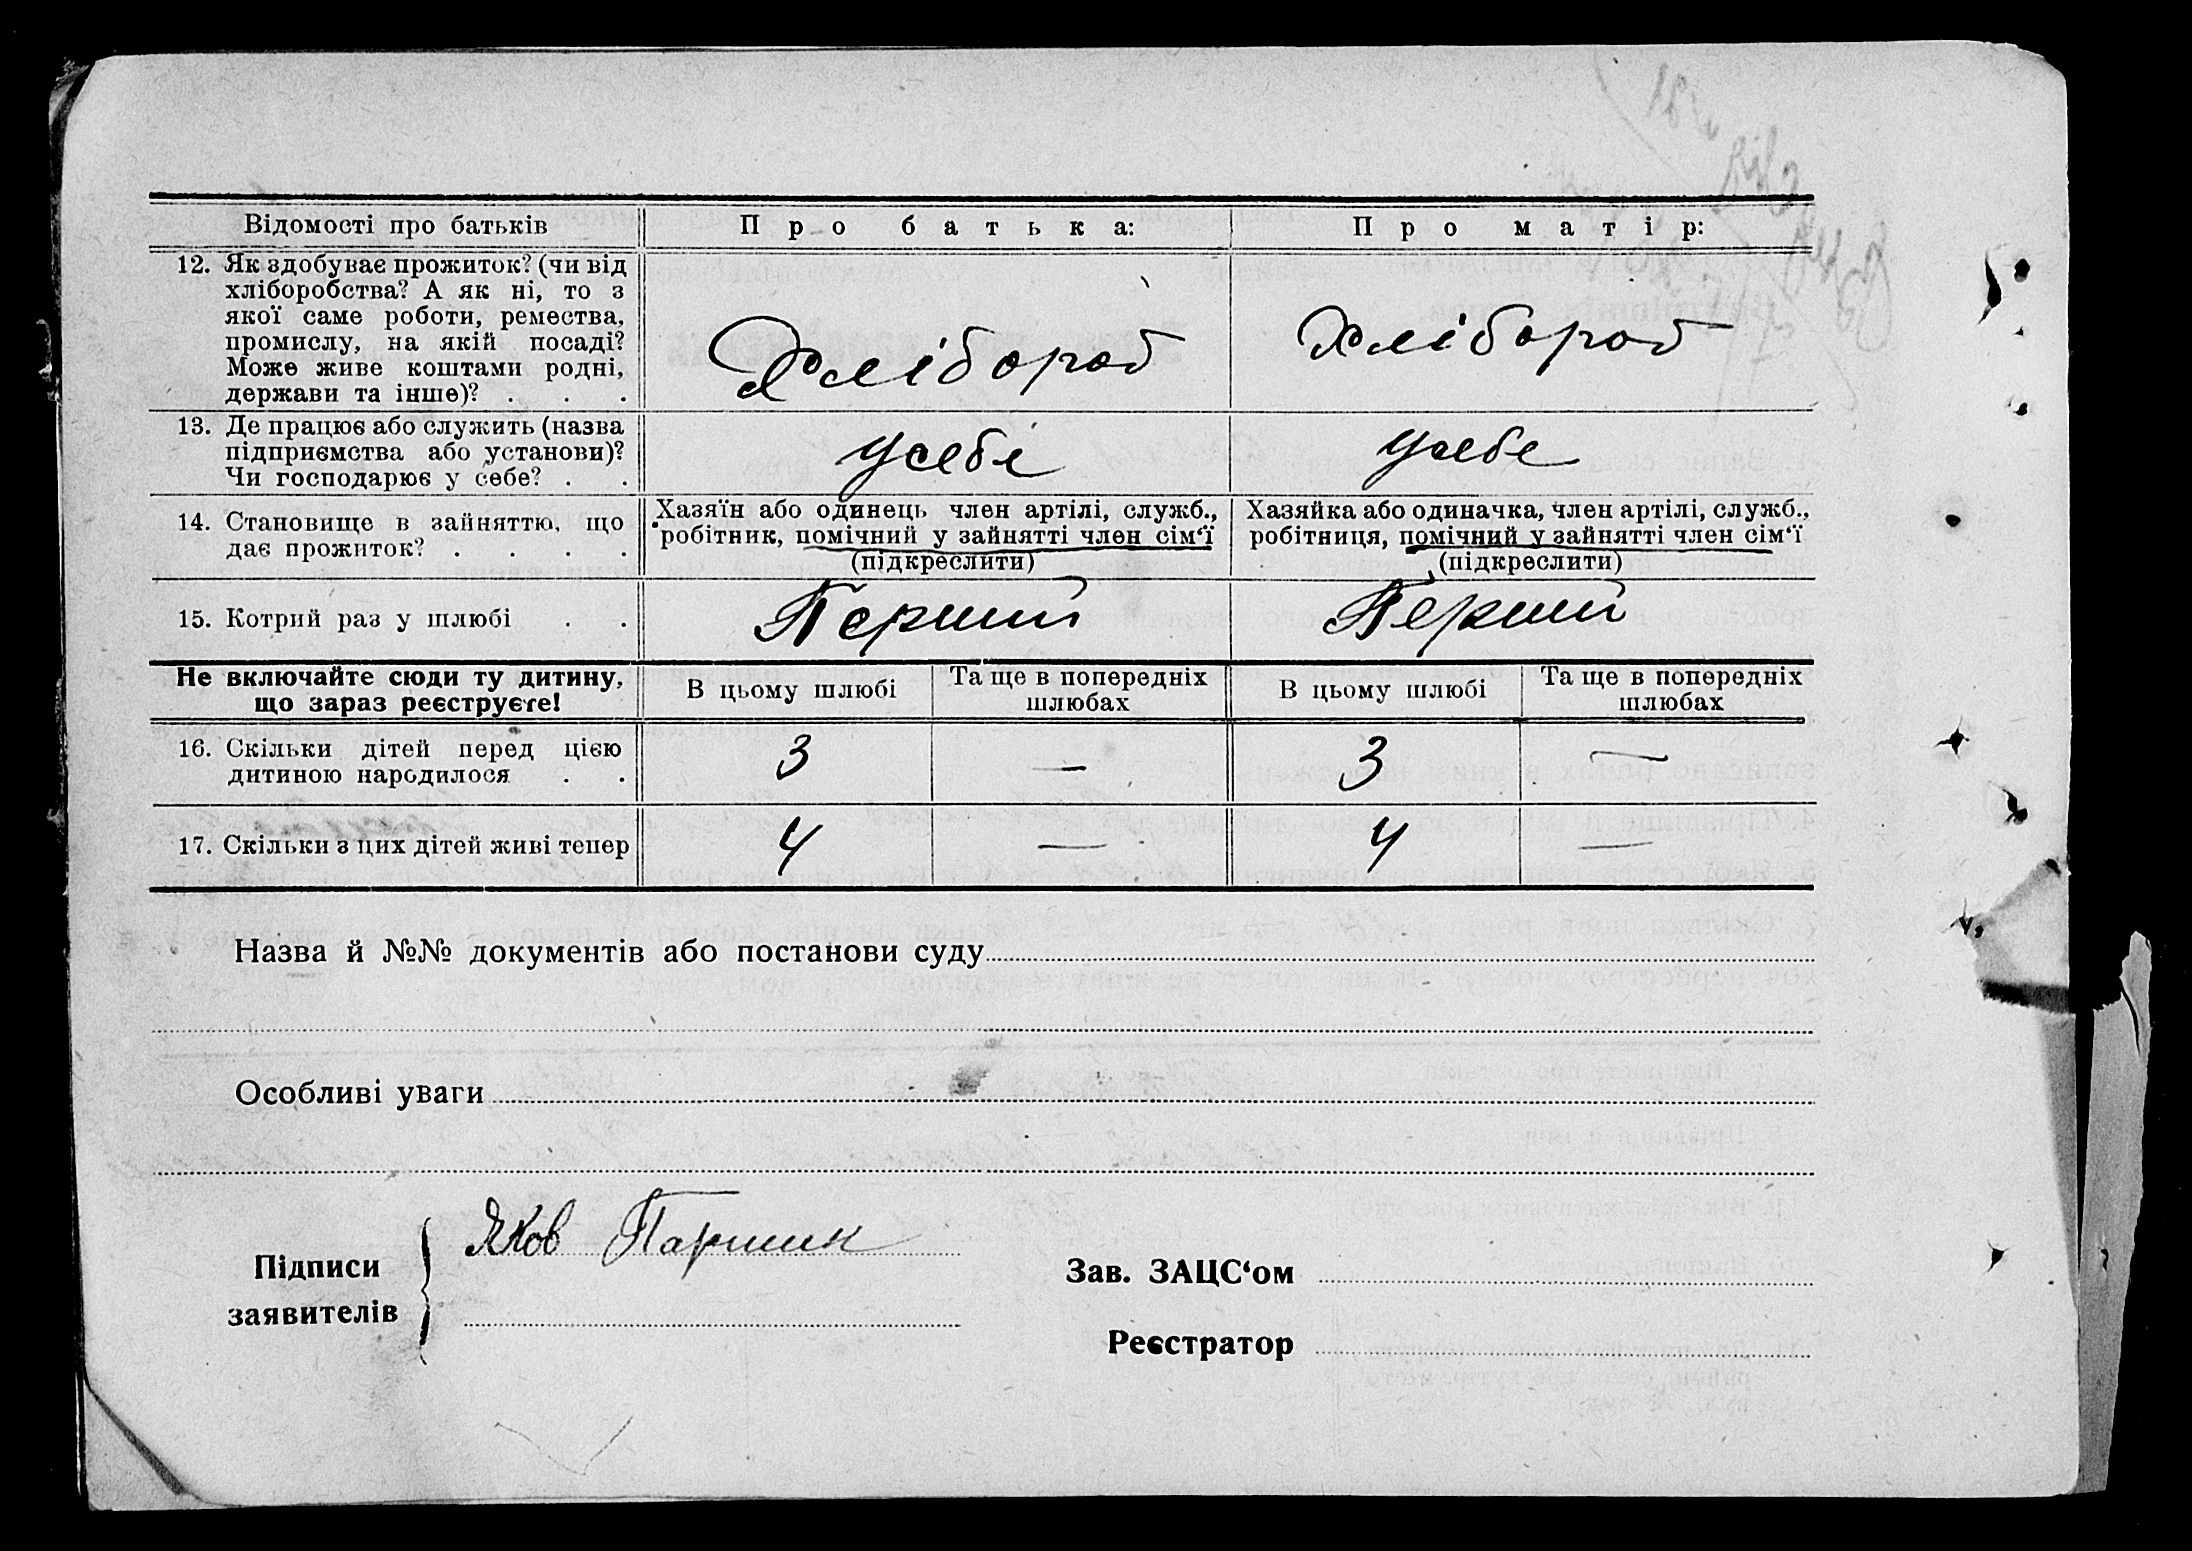 Відомості про батьків
Про батька:
Про матір:
12. Як здобуває прожиток? (чи від
хліборобства? А як ні, то з
якої саме роботи, ремества,
промислу, на якій посаді?
Може живе коштами родні,
держави та інше)? . . .
Хлібороб
Хлібороб
13. Де працює або служить (назва
підприємства або установи)?
Чи господарює у себе? . .
усебі
усебе
14. Становище в зайняттю, що
дає прожиток? . . . .
Хазяїн або одинець член артілі, служб.,
робітник, помічний у зайнятті член сім‘ї
(підкреслити)
Хазяйка або одиначка, член артілі, служб.,
робітниця, помічний у зайнятті член сім‘ї
(підкреслити)
15. Котрий раз у шлюбі . .
Перший
Перший
Не включайте сюди ту дитину,
що зараз реєструєте!
В цьому шлюбі
Та ще в попередніх
шлюбах
В цьому шлюбі
Та ще в попередніх
шлюбах
16. Скільки дітей перед цією
дитиною народилося . .
3
—
3
—
17. Скільки з цих дітей живі тепер
4
—
4
—
Назва й №№ документів або постанови суду
Особливі уваги
Підписи
заявителів
Яков Паршик
Зав. ЗАЦС‘ом
Реєстратор